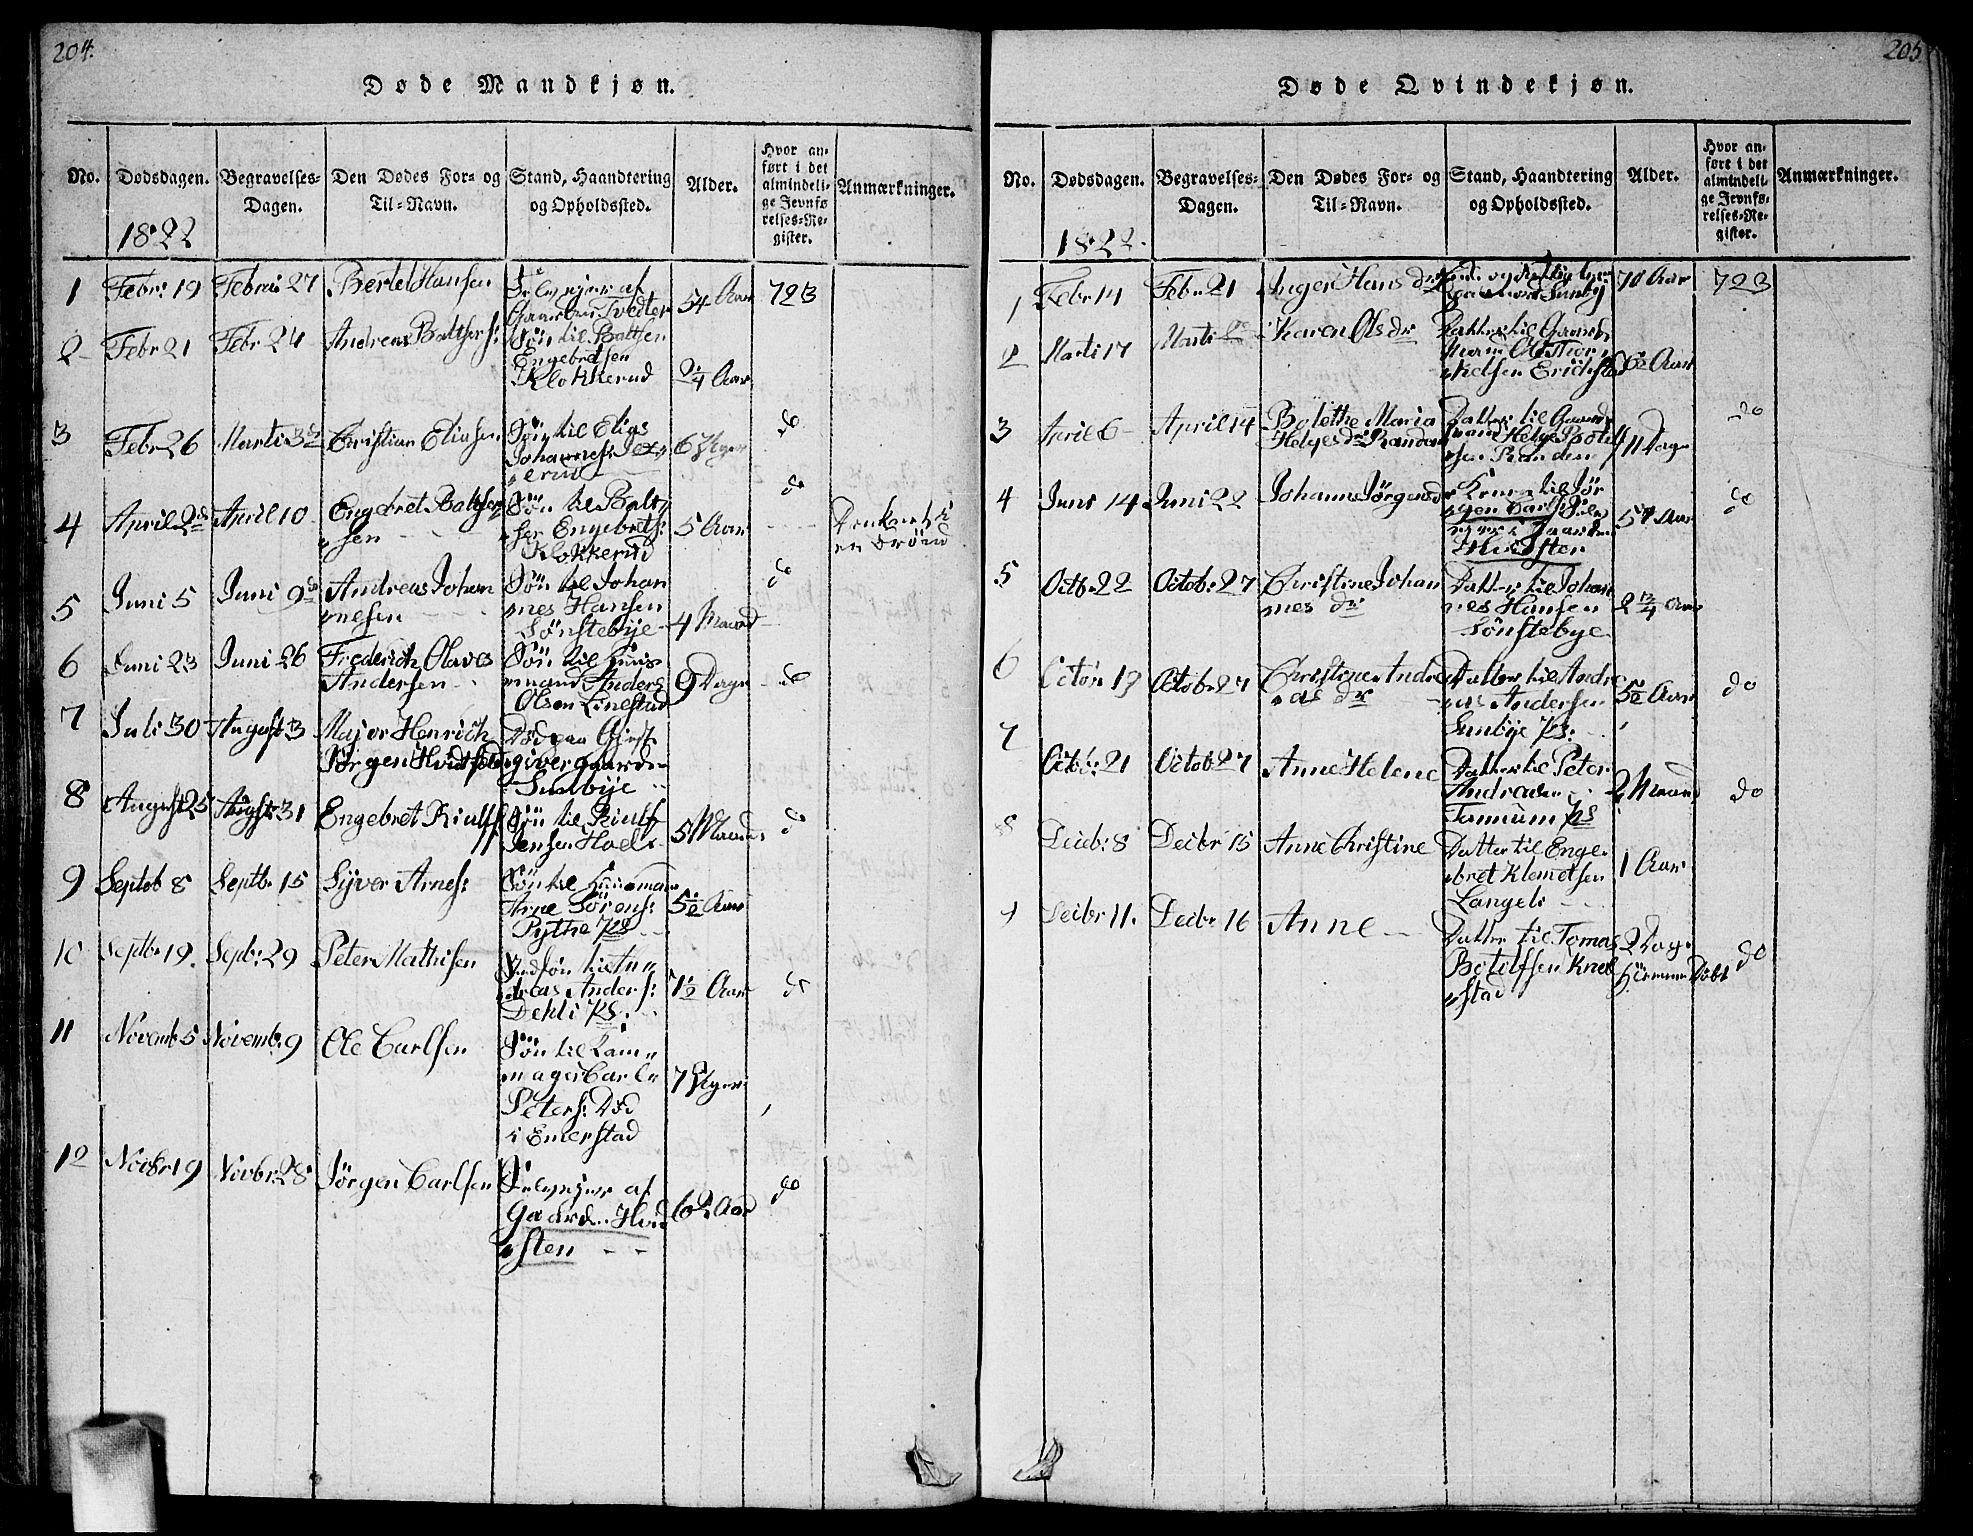 204.
Døde Mandkjøn.
No.
Dødsdagen.
Begravelses-
Dagen.
Den Dødes For- og
Til-Navn.
Stand, Haandtering
og Opholdssted.
Alder.
Hvor an-
ført i det
almindeli-
ge Jevnfø-
relses-Re-
gister.
Anmærkninger.
1822
1 Febr: 19 Februi 27 Bertel Hansen
Selvejer af
Gaarden Tvedter
54 Aar 723
2 Febr 21 Febr 24 Andreas Baltsers:
Søn til Baltser
Engebretsen
Klokkerud
2 1/4 Aar
3 Febr 26 Marti 3 Christian Eliasen
Søn til Elias
Johannesf:
erud
6 Uger do
4 April 2 April 10 Engebret Baltser
sen
Søn til Balt
ser Engebretf:
Klokkerud
5 Aar do
Druknet i
en Brönd
5 Juni 5 Juni 9 Andreas Johan
nesen
Søn til Johan
nes Hansen
Sönstebye
4 Maaned do
6 Juni 23 Juni 26 Frederich Olaves
Andersen
Søn til Huus
mand Anders
Olsen Linestad
9 Dage do
7 Juli 30 August 3 Major Henrich
Jörgen Hvidtfeld
Död paa Gjest
givergaarden
Sunbye
8 August 25 August 31 Engebret Riulff
Søn til Riulff
Jensen Hoel
5 Maaned do
9 Septob 8 Septb: 15 Syver Arnes:
Søn til Huusman
Arne Sörens:
Pythe
5 1/2 Aar
10 Septb: 19. Sepb: 29 Peter Mathisen
til An
dreas Anders:
Dehli
7 1/2 Aar do
11 Novemb 5 Novemb: 9 Ole Carlsen
Søn til Lam
mager Carl
Peters: Död
i Emerstad
7 Uger
12 Novbr 19 Novbr: 28 Jörgen Carlsen
Selvejer af
Gaarden Hvid
sten
62 Aar do
205
Døde Qvindekjøn.
No.
Dødsdagen.
Begravelses-
Dagen.
Den Dødes For- og
Til-Navn.
Stand, Haandtering
og Opholdssted.
Alder.
Hvor an-
ført i det
almindeli-
ge Jevnfø-
relses-Re-
gister.
Anmærkninger.
1822.
1 Febr 14 Febr 21 Inger Hans dr
Sunby
70 Aar 723
2 Marti 17 Marti Karen Ols dr
Datter til Gaard
mand Ole Thor
kelsen Erichstad
6 1/2 Aar
3 April 6 April 14 Bolethe Maria
Helges dr Randen
Datter til Gaard
mand Helge Bottilf
sen Randen
11 Dage do
4 Juni 14 Juni 22 Johanne Jörgensdr
Kone til Jör
gen Carlf: Selv
ejer i Gaarden
Hvidsten
57 Aar do
5 Octb: 22 Octob: 27 Christine Johan
nes dr
Datter til Johan
nes Hansen
Sönstebye
2 3/4 Aar
6 Octbr: 19 Octob: 27 Christine Andre
as dr
Datter til Andre
as Andersen
Sunbye
5 1/2 Aar do
7 Octob: 21 Octob 27 Anne Helene
Datter til Peter
Andreasen
Tannum
2 Maaned do
8 Decb: 8 Decbr 15 Anne Christine
Datter til Enge
bret Klemetsen
Langeli
1 Aar
9 Decbr 11. Decbr 16 Anne
Datter til Tomas
Botilfsen Knab
stad
2 Dage
Hiemme Döbt
do